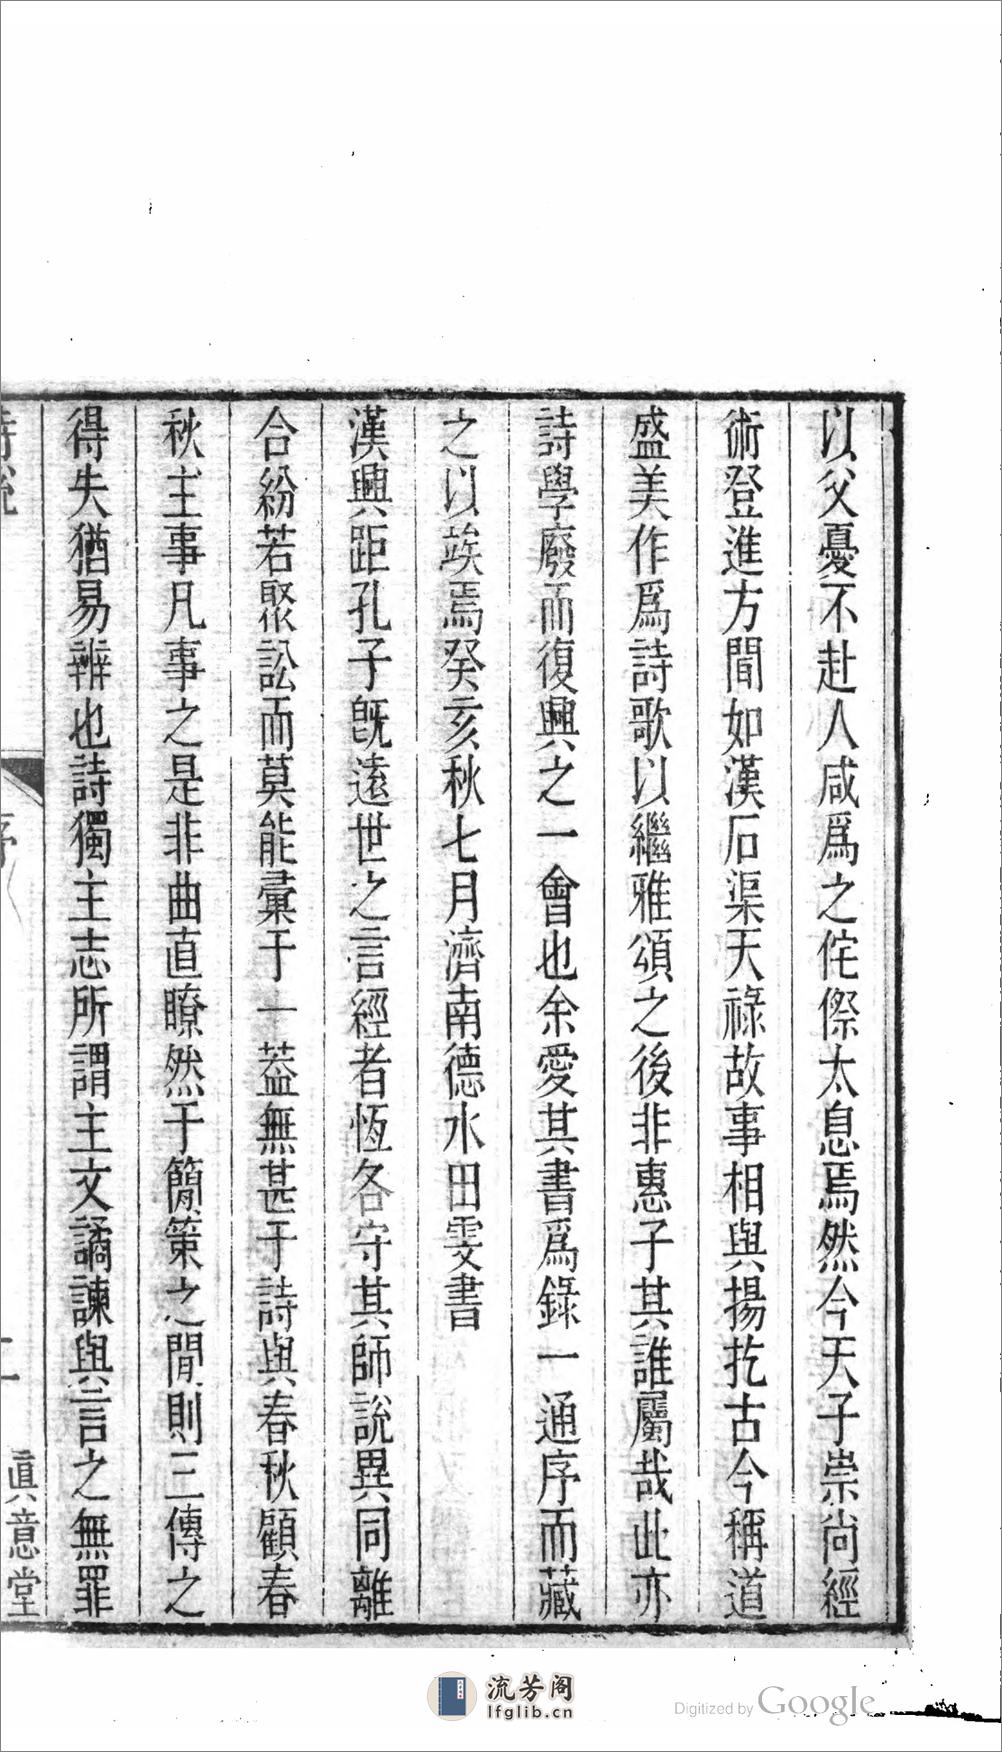 以父憂不赴人咸爲之侘傺太息焉然今天子崇尚經
術登進方聞如漢石渠天祿故事相與揚扢古今稱道
盛美作爲詩歌以繼雅頌之後非惠子其誰屬哉此亦
詩學廢而復興之一會也余愛其書爲錄一通序而藏
之以竢焉癸亥秋七月濟南德水田雯書
漢興距孔子旣遠世之言經者恆各守其師說異同離
合紛若聚訟而莫能彙于一葢無甚于詩與春秋顧春
秋主事凡事之是非曲直瞭然于簡策之閒則三傳之
得失猶易辨也詩獨主志所謂主文譎諫與言之無罪
詩說 序 二 眞意堂
流芳阁
lfglib.cn
Digitized by Google